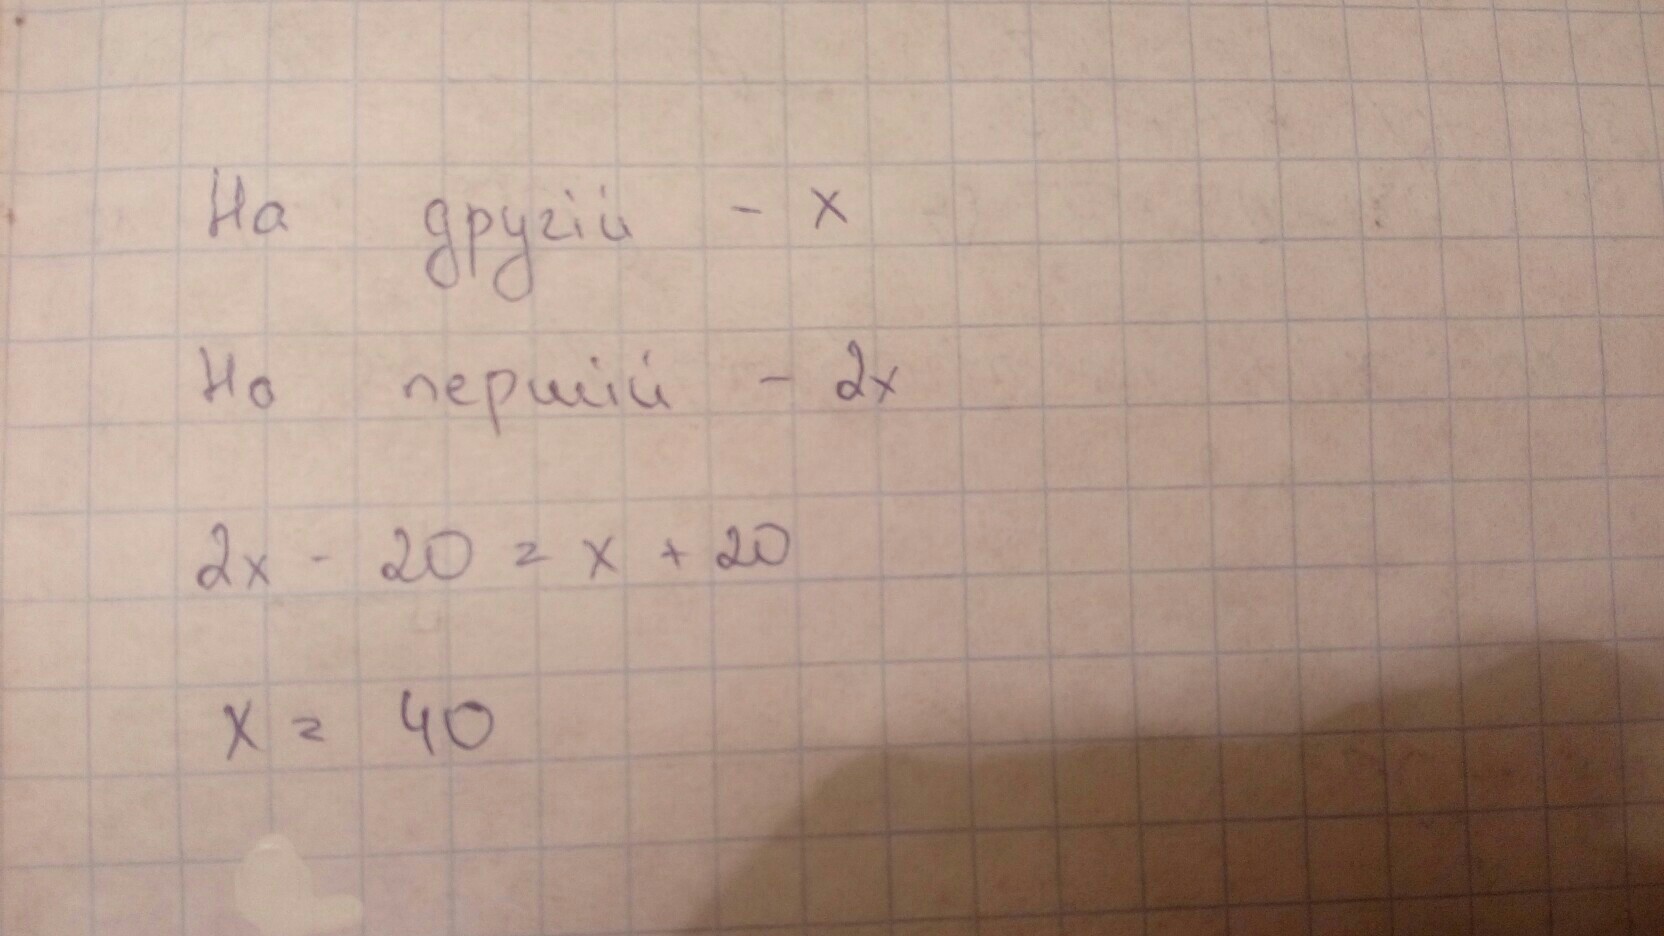 На другій - x
На першій - 2x
2x - 20 = x + 20
x = 40